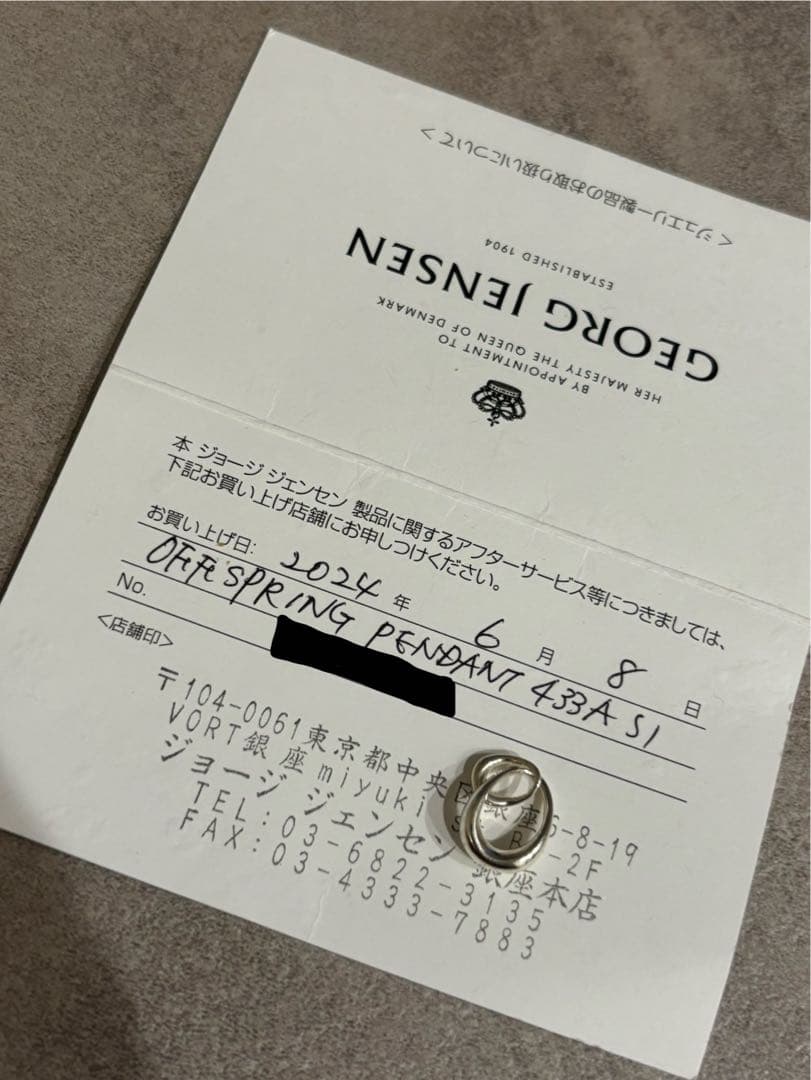 <ジュエリー製品のお取り扱いについて>
GEORG JENSEN
ESTABLISHED 1904
BY APPOINTMENT TO
HER MAJESTY THE QUEEN OF DENMARK
本 ジョージ ジェンセン 製品に関するアフターサービス等につきましては、
下記お買い上げ店舗にお申しつけください。
お買い上げ日: 2024 年 6 月 8 日
OFFSPRING PENDANT 433A SI
No.
<店舗印>
〒104-0061東京都中央区銀座6-8-19
VORT銀座miyuki -2F
ジョージ ジェンセン 銀座本店
TEL:03-6822-3135
FAX:03-4333-7883